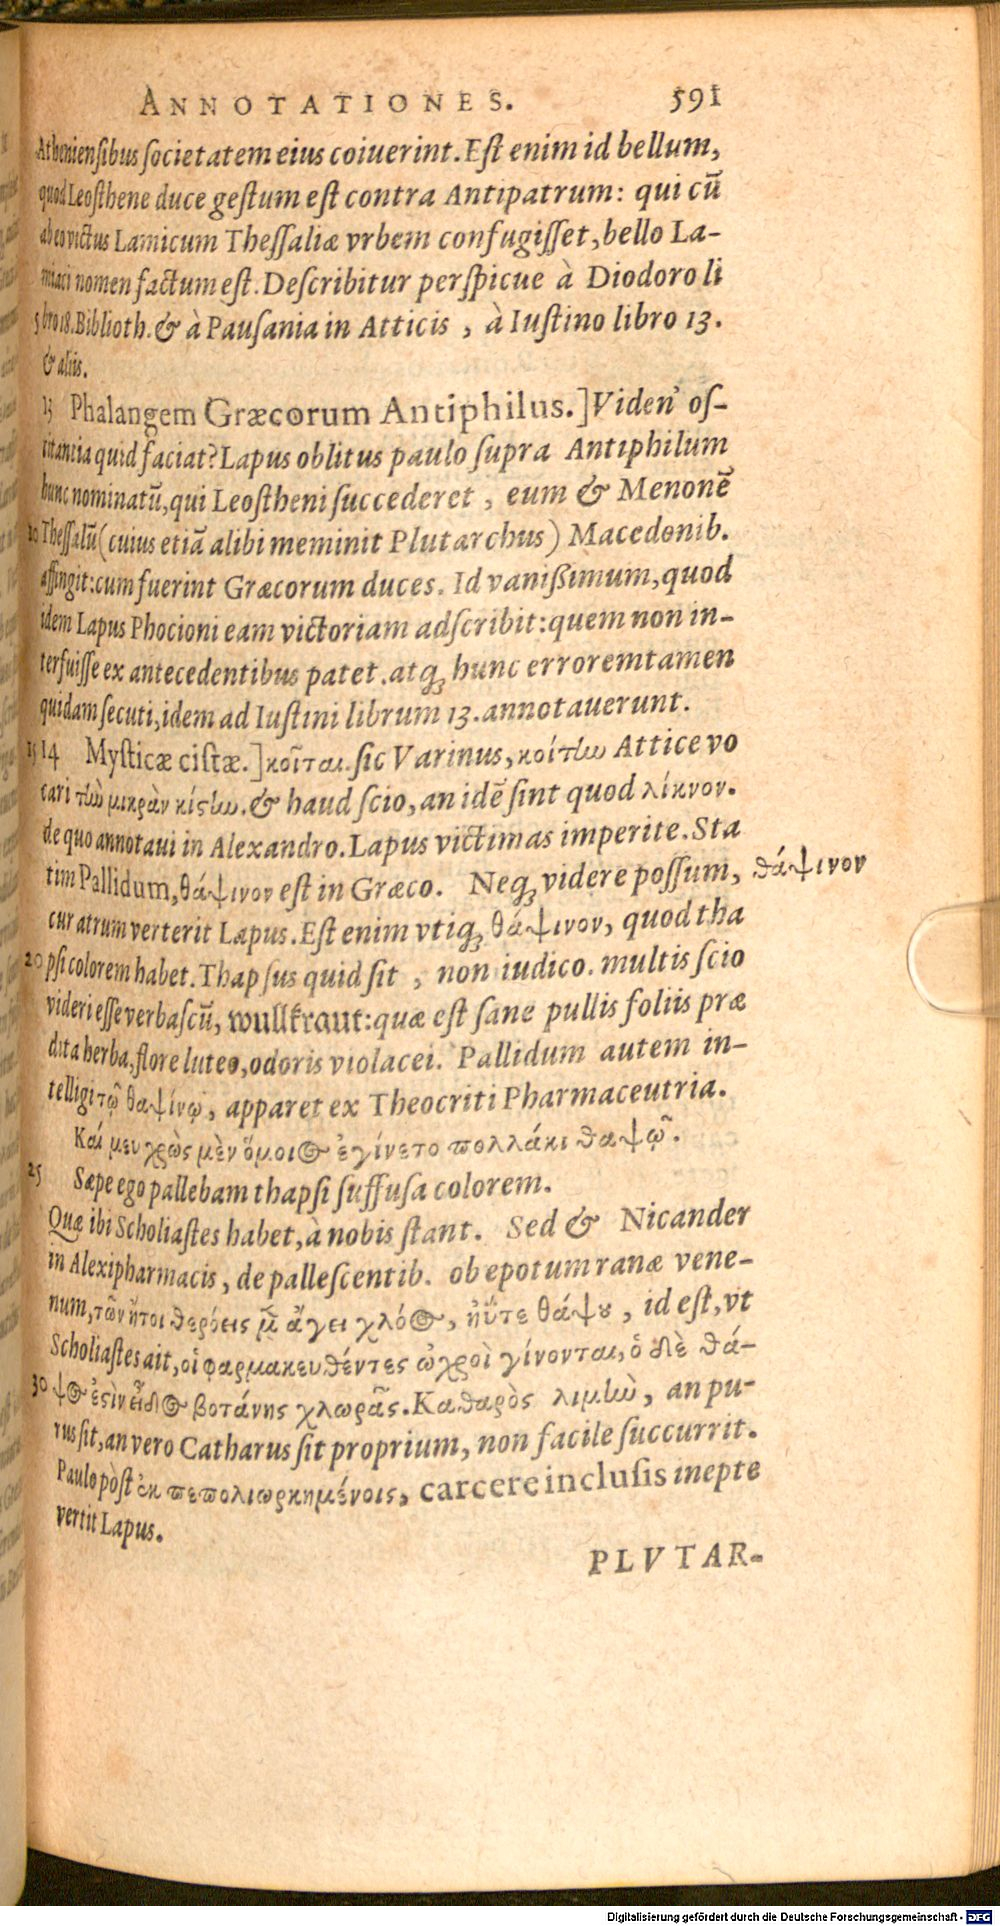 ANNOTATIONES. 591
Atheniensibus societatem eius coiuerint. Est enim id bellum,
quod Leosthene duce gestum est contra Antipatrum: qui cū
ab eo victus Lamicum Thessaliæ vrbem confugisset, bello La-
miaci nomen factum est. Describitur perspicue à Diodoro li
5 bro 18. Biblioth. & à Pausania in Atticis, à Iustino libro 13.
& aliis.
13 Phalangem Græcorum Antiphilus.] Viden' os-
citantia quid faciat? Lapus oblitus paulo supra Antiphilum
hunc nominatū, qui Leostheni succederet, eum & Menonē
10 Thessalū (cuius etiā alibi meminit Plutarchus) Macedonib.
affingit: cum fuerint Græcorum duces. Id vanißimum, quod
idem Lapus Phocioni eam victoriam adscribit: quem non in-
terfuisse ex antecedentibus patet. atq; hunc errorem tamen
quidam secuti, idem ad Iustini librum 13. annotauerunt.
15 14 Mysticæ cistæ.] κοῖται. sic Varinus, κοίτην Attice vo
cari τὴν μικρὰν κίστην. & haud scio, an idē sint quod λίκνον.
de quo annotaui in Alexandro. Lapus victimas imperite. Sta
tim Pallidum, θάψινον est in Græco. Neq; videre possum, θάψινον
cur atrum verterit Lapus. Est enim vtiq; θάψινον, quod tha
20 psi colorem habet. Thapsus quid sit, non iudico. multis scio
videri esse verbascū, wullkraut: quæ est sane pullis foliis præ
dita herba, flore luteo, odoris violacei. Pallidum autem in-
telligi τῷ θαψίνῳ, apparet ex Theocriti Pharmaceutria.
Καί μευ χρὼς μὲν ὅμοιος ἐγίνετο πολλάκι θαψῷ.
25 Sæpe ego pallebam thapsi suffusa colorem.
Quæ ibi Scholiastes habet, à nobis stant. Sed & Nicander
in Alexipharmacis, de pallescentib. ob epotum ranæ vene-
num, τῶν ἤτοι θερόεις μ̃ ἄγει χλόος, ἠΰτε θάψου, id est, vt
Scholiastes ait, οἱ φαρμακευθέντες ὠχροὶ γίνονται, ὁ δὲ θά-
30 ψος ἐστὶν εἶδος βοτάνης χλωρᾶς. Καθαρὸς λιμὴν, an pu-
rus sit, an vero Catharus sit proprium, non facile succurrit.
Paulo pòst ἐκ πεπολιωρκημένοις, carcere inclusis inepte
vertit Lapus.
PLVTAR-
Digitalisierung gefördert durch die Deutsche Forschungsgemeinschaft - DFG